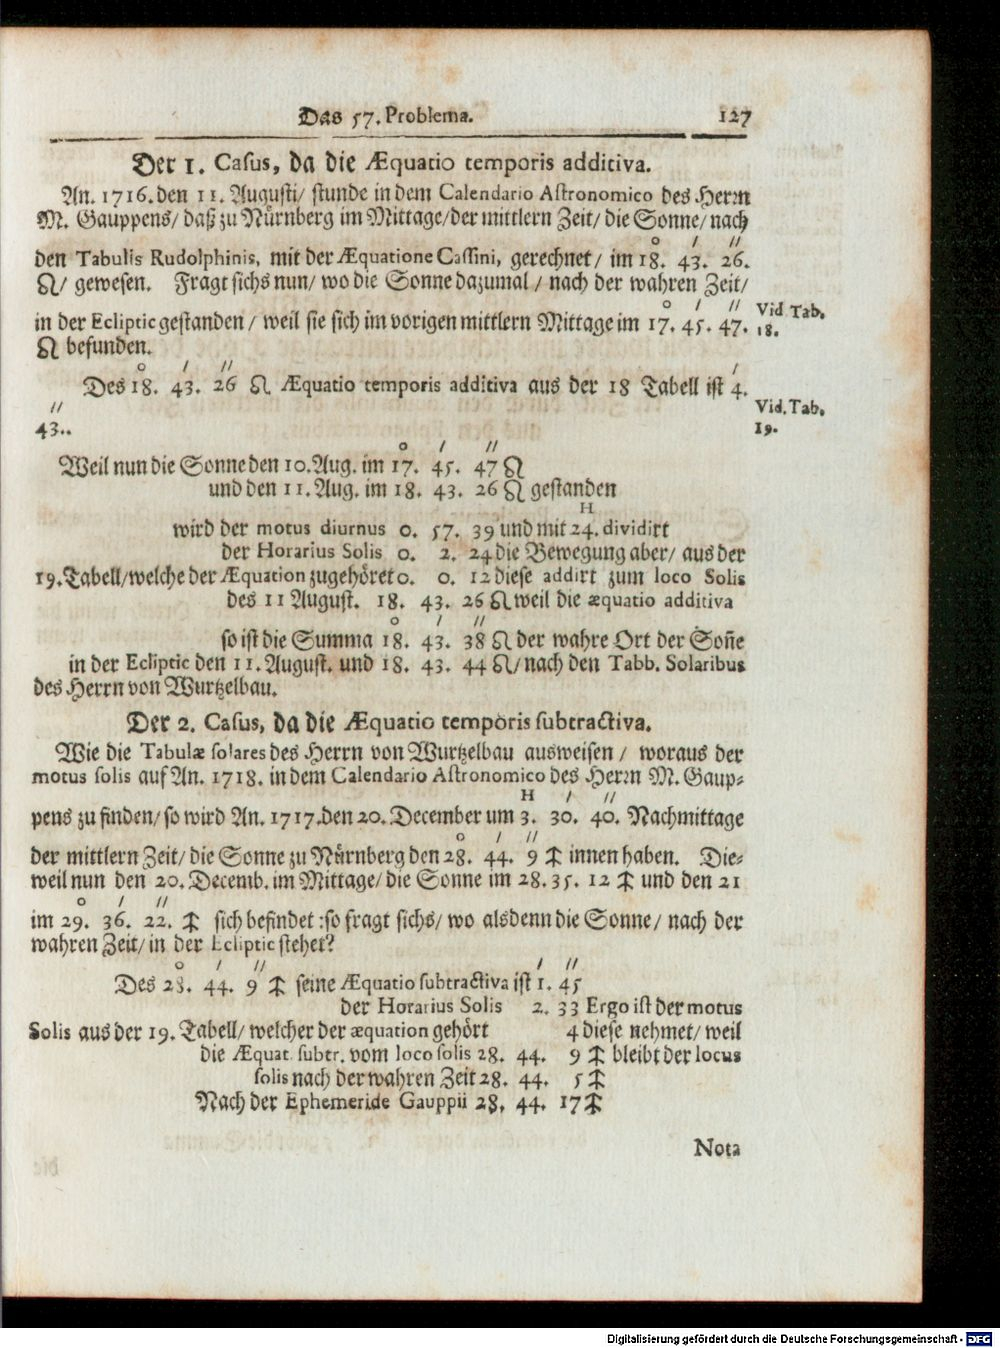 Das 57. Problema. 127
Der 1. Casus, da die Æquatio temporis additiva.
An. 1716. den 11. Augusti/ stunde in dem Calendario Astronomico des Herrn
M. Gauppens/ daß zu Nürnberg im Mittage/ der mittlern Zeit/ die Sonne/ nach
o / //
den Tabulis Rudolphinis, mit der Æquatione Cassini, gerechnet/ im 18. 43. 26.
♌/ gewesen. Fragt sichs nun/ wo die Sonne dazumal/ nach der wahren Zeit/
o / //
in der Ecliptic gestanden/ weil sie sich im vorigen mittlern Mittage im 17. 45. 47.
Vid Tab.
18.
♌ befunden.
o / // /
Des 18. 43. 26 ♌ Æquatio temporis additiva aus der 18 Tabell ist 4.
//
43..
Vid. Tab.
19.
o / //
Weil nun die Sonne den 10. Aug. im 17. 45. 47 ♌
und den 11. Aug. im 18. 43. 26 ♌ gestanden
H
wird der motus diurnus 0. 57. 39 und mit 24. dividirt
der Horarius Solis 0. 2. 24 die Bewegung aber/ aus der
19. Tabell/ welche der Æquation zugehöret 0. 0. 12 diese addirt zum loco Solis
des 11 August. 18. 43. 26 ♌ weil die æquatio additiva
o / //
so ist die Summa 18. 43. 38 ♌ der wahre Ort der Soñe
in der Ecliptic den 11. August. und 18. 43. 44 ♌/ nach den Tabb. Solaribus
des Herrn von Wurtzelbau.
Der 2. Casus, da die Æquatio temporis subtractiva.
Wie die Tabulæ solares des Herrn von Wurtzelbau ausweisen/ woraus der
motus solis auf An. 1718. in dem Calendario Astronomico des Herrn M. Gaup-
H / //
pens zu finden/ so wird An. 1717. den 20. December um 3. 30. 40. Nachmittage
o / //
der mittlern Zeit/ die Sonne zu Nürnberg den 28. 44. 9 ♐ innen haben. Die-
weil nun den 20. Decemb. im Mittage/ die Sonne im 28. 35. 12 ♐ und den 21
o / //
im 29. 36. 22. ♐ sich befindet: so fragt sichs/ wo alsdenn die Sonne/ nach der
wahren Zeit/ in der Ecliptic stehet?
o / // / //
Des 28. 44. 9 ♐ seine Æquatio subtractiva ist 1. 45
der Horarius Solis 2. 33 Ergo ist der motus
Solis aus der 19. Tabell/ welcher der æquation gehört 4 diese nehmet/ weil
die Æquat. subtr. vom loco solis 28. 44. 9 ♐ bleibt der locus
solis nach der wahren Zeit 28. 44. 5 ♐
Nach der Ephemeride Gauppii 28. 44. 17 ♐
Nota
Digitalisierung gefördert durch die Deutsche Forschungsgemeinschaft - DFG